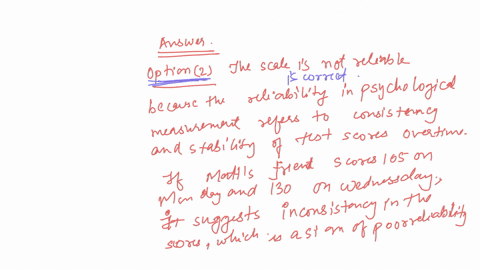 Answer.
Option(2) The scale is not reliable
is correct.
because the reliability in psychological
measurement refers to consistency
and stability of test scores overtime.
If Madil's friend scores 105 on
Monday and 130 on Wednesday,
it suggests inconsistency in the
scores, which is a sign of poor reliability